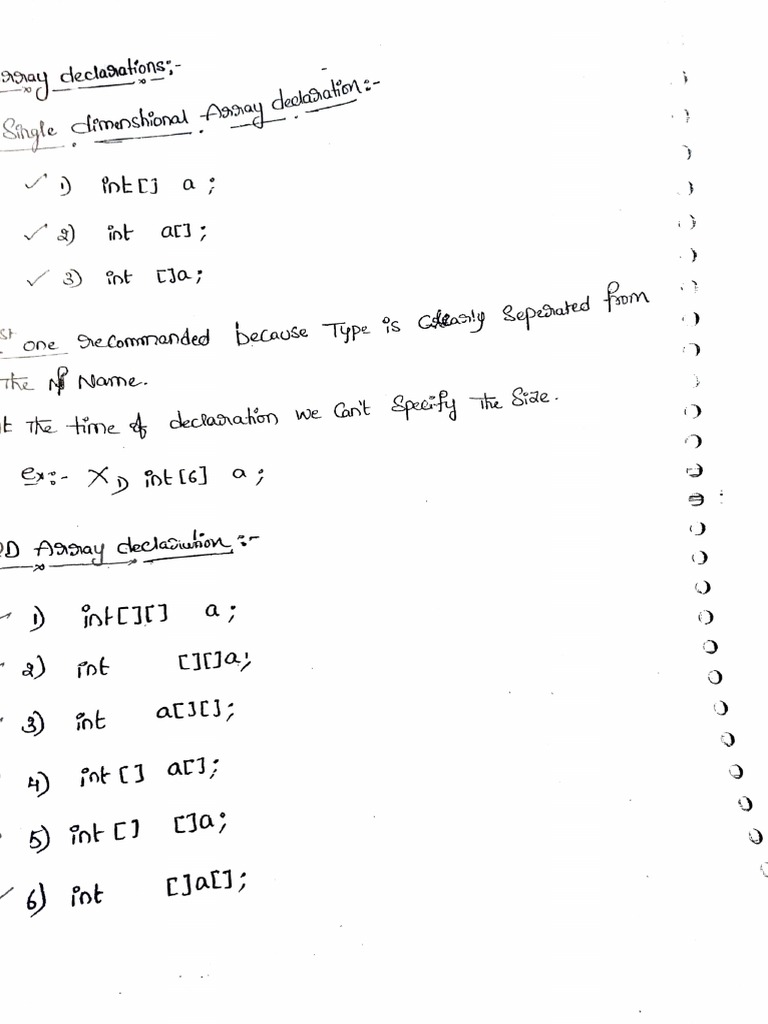 array declarations:-
Single dimenshional Array declaration:-
✓ 1) int[] a;
✓ 2) int a[];
✓ 3) int []a;
st one recommanded because Type is Clearly Seperated from
the Name.
t the time of declaration we Can't Specify the Size.
ex:- X 1) int[6] a;
2D Array declaration:-
1) int[][] a;
2) int [][]a;
3) int a[][];
4) int[] a[];
5) int[] []a;
✓ 6) int []a[];